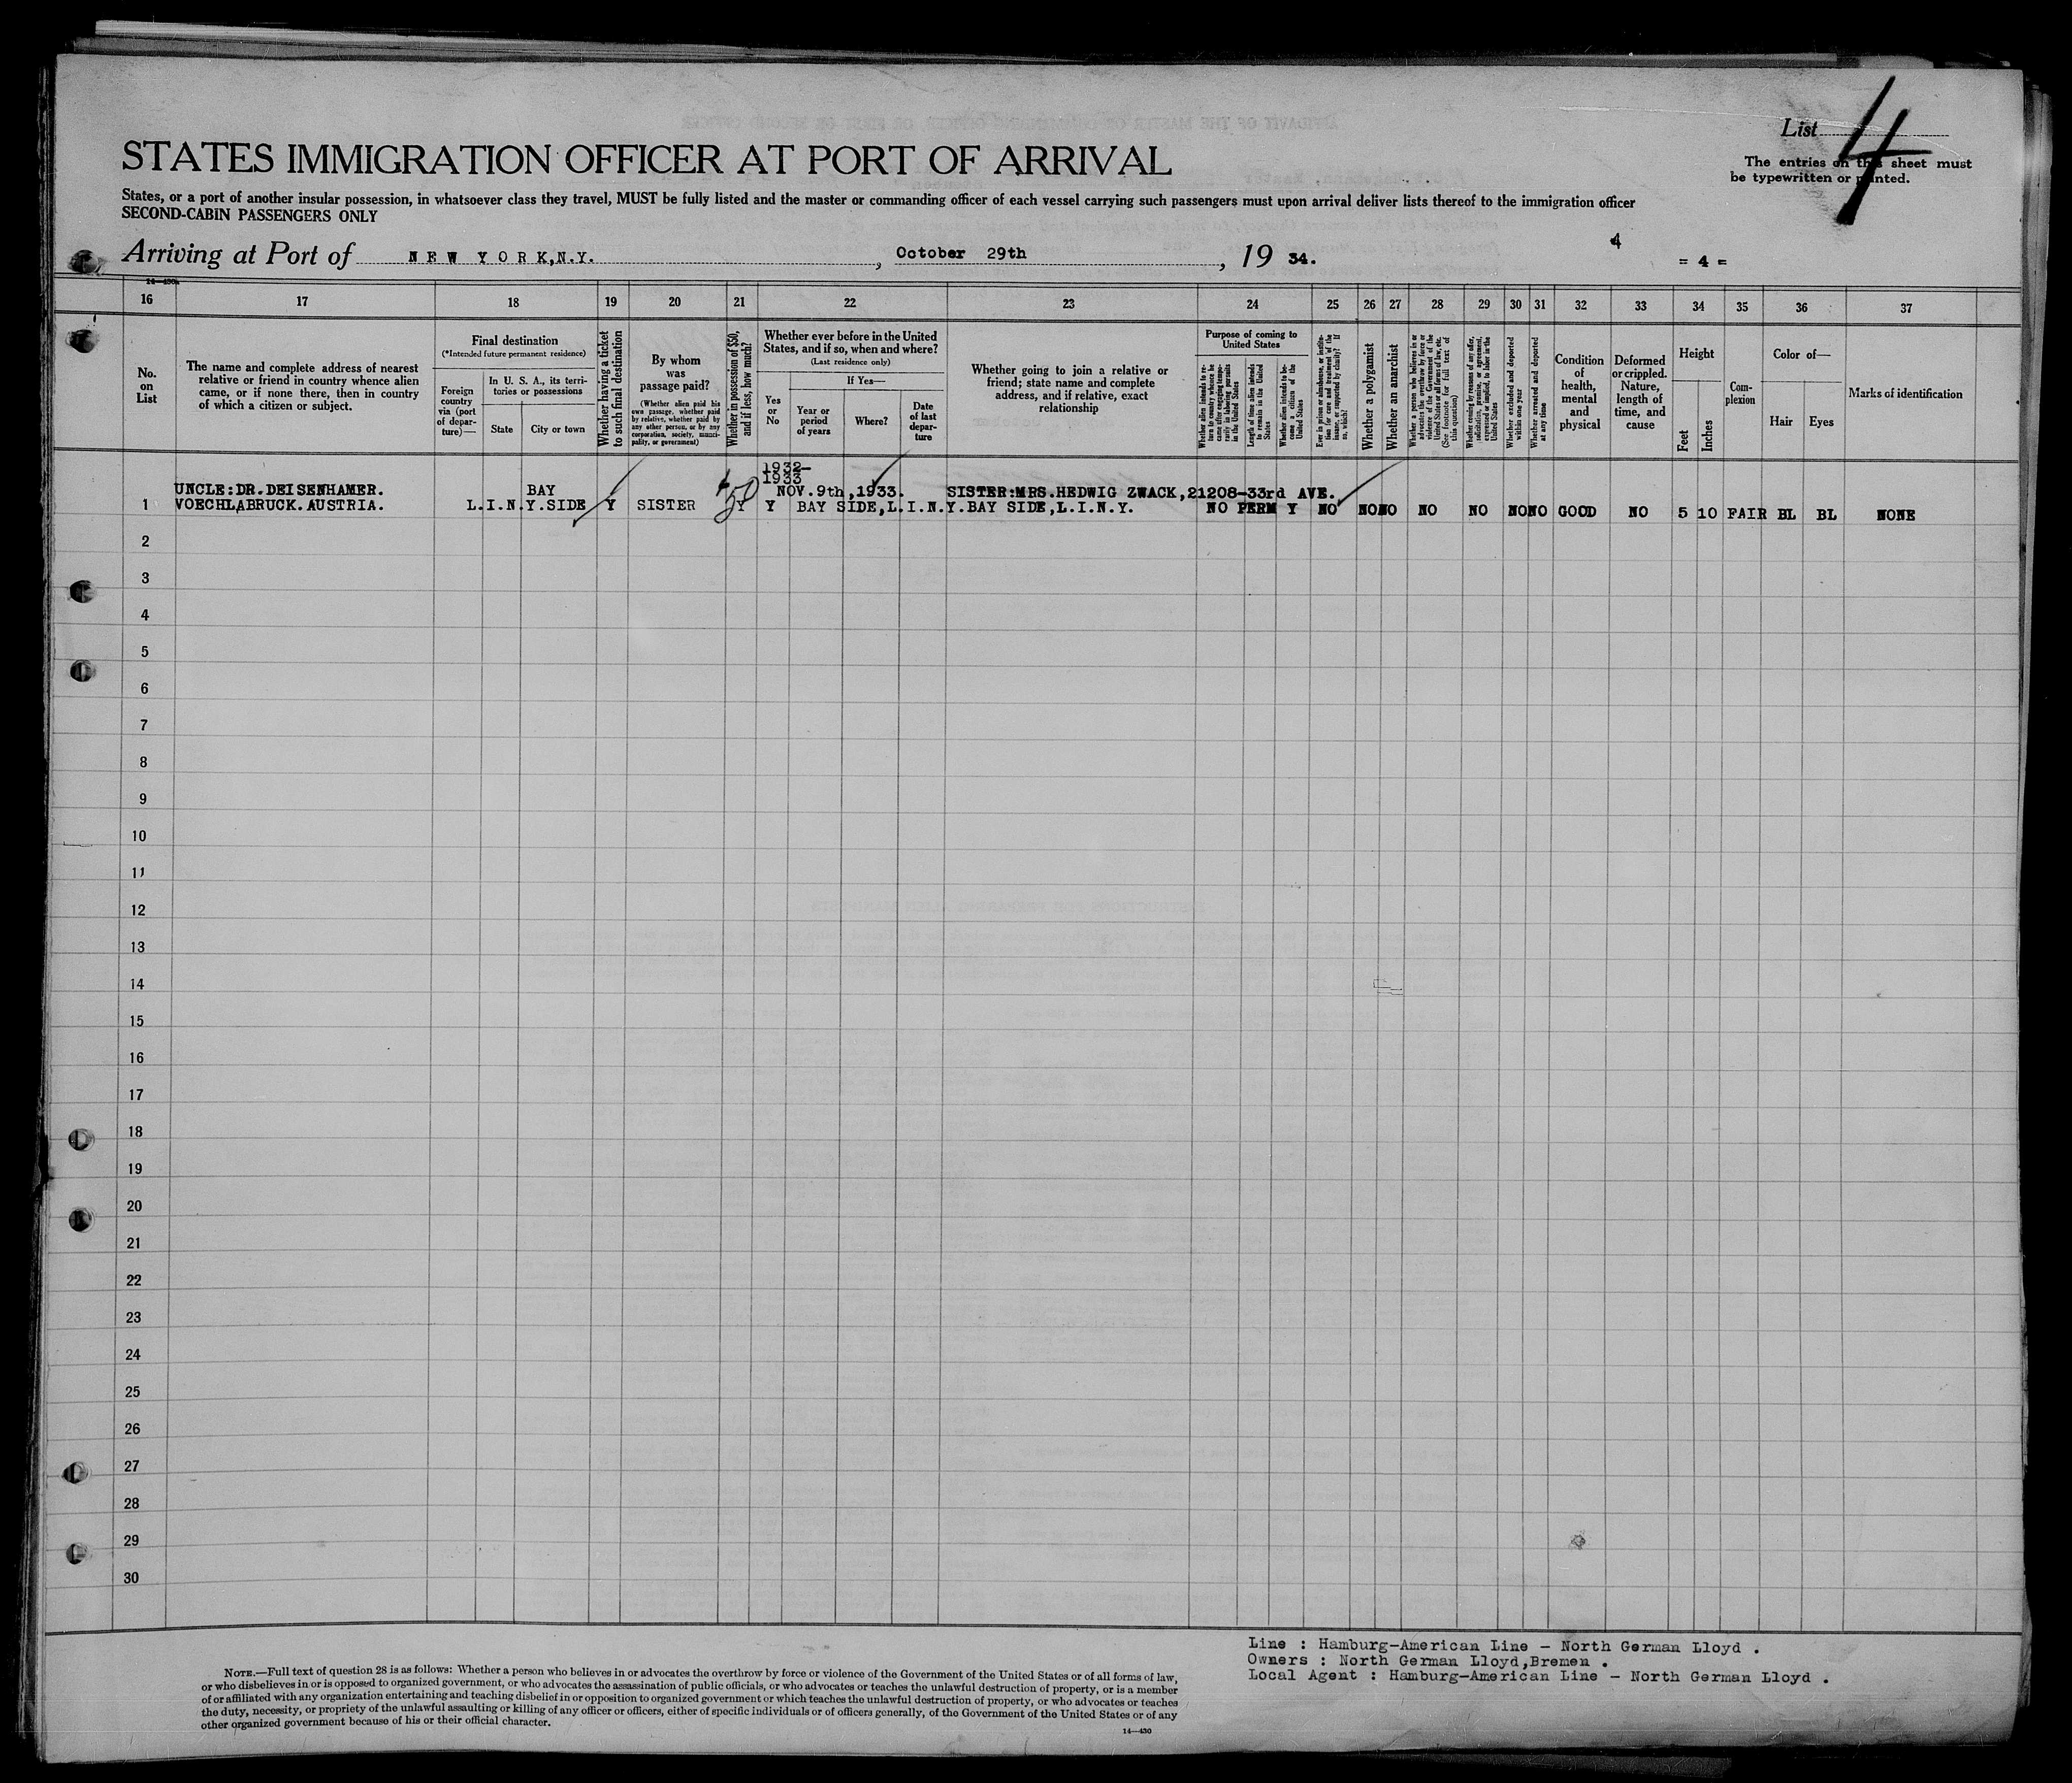 List 4
STATES IMMIGRATION OFFICER AT PORT OF ARRIVAL
The entries on this sheet must
be typewritten or printed.
States, or a port of another insular possession, in whatsoever class they travel, MUST be fully listed and the master or commanding officer of each vessel carrying such passengers must upon arrival deliver lists thereof to the immigration officer
SECOND-CABIN PASSENGERS ONLY
Arriving at Port of NEW YORK,N.Y. , October 29th , 19 34.
4
= 4 =
14—430
16 17 18 19 20 21 22 23 24 25 26 27 28 29 30 31 32 33 34 35 36 37
No.
on
List
The name and complete address of nearest
relative or friend in country whence alien
came, or if none there, then in country
of which a citizen or subject.
Final destination
(*Intended future permanent residence)
Foreign
country
via (port
of depar-
ture)—
In U. S. A., its terri-
tories or possessions
State
City or town
Whether having a ticket
to such final destination
By whom
was
passage paid?
(Whether alien paid his
own passage, whether paid
by relative, whether paid by
any other person, or by any
corporation, society, munici-
pality, or government)
Whether in possession of $50,
and if less, how much?
Whether ever before in the United
States, and if so, when and where?
(Last residence only)
Yes
or
No
If Yes—
Year or
period
of years
Where?
Date
of last
depar-
ture
Whether going to join a relative or
friend; state name and complete
address, and if relative, exact
relationship
Purpose of coming to
United States
Whether alien intends to re-
turn to country whence he
came after engaging tempo-
rarily in laboring pursuits
in the United States
Length of time alien intends
to remain in the United
States
Whether alien intends to be-
come a citizen of the
United States
Ever in prison or almshouse, or institu-
tion for care and treatment of the
insane, or supported by charity? If
so, which?
Whether a polygamist
Whether an anarchist
Whether a person who believes in or
advocates the overthrow by force or
violence of the Government of the
United States or all forms of law, etc.
(See footnote for full text of
this question)
Whether coming by reasons of any offer,
solicitation, promise, or agreement,
expressed or implied, to labor in the
United States
Whether excluded and deported
within one year
Whether arrested and deported
at any time
Condition
of
health,
mental
and
physical
Deformed
or crippled.
Nature,
length of
time, and
cause
Height
Feet
Inches
Com-
plexion
Color of—
Hair
Eyes
Marks of identification
1932-
1933
UNCLE:DR.DEISENHAMER. BAY 50 NOV.9th,1933. SISTER:MRS.HEDWIG ZWACK,21208-33rd AVE.
1 VOECHLABRUCK.AUSTRIA. L.I.N.Y.SIDE Y SISTER Y Y BAY SIDE,L.I.N.Y.BAY SIDE,L.I.N.Y. NO PERM Y NO NO NO NO NO NO NO GOOD NO 5 10 FAIR BL BL NONE
2
3
4
5
6
7
8
9
10
11
12
13
14
15
16
17
18
19
20
21
22
23
24
25
26
27
28
29
30
Line : Hamburg-American Line - North German Lloyd .
Owners : North German Lloyd,Bremen .
Local Agent : Hamburg-American Line - North German Lloyd .
NOTE.—Full text of question 28 is as follows: Whether a person who believes in or advocates the overthrow by force or violence of the Government of the United States or of all forms of law,
or who disbelieves in or is opposed to organized government, or who advocates the assassination of public officials, or who advocates or teaches the unlawful destruction of property, or is a member
of or affiliated with any organization entertaining and teaching disbelief in or opposition to organized government or which teaches the unlawful destruction of property, or who advocates or teaches
the duty, necessity, or propriety of the unlawful assaulting or killing of any officer or officers, either of specific individuals or of officers generally, of the Government of the United States or of any
other organized government because of his or their official character.
14—430